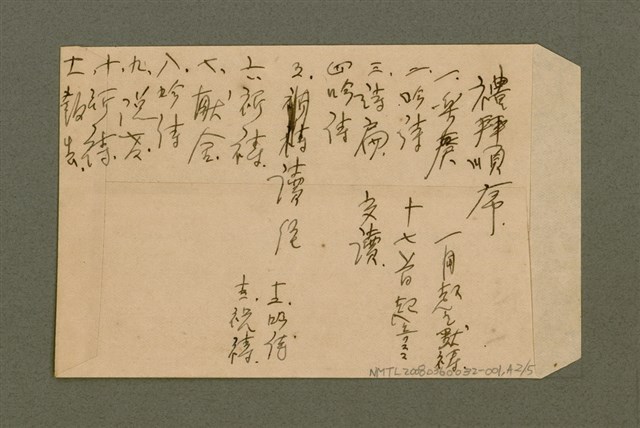 禮拜順序
一、奏樂 一同起立默禱
二、吟詩 十七首起立
三、詩扁 交讀
四吟詩
五、讀經
六祈禱
七、献金
八、吟詩
九、說教
十、祈禱
十一報告
士吟詩
吉祝禱
NMTL20080360032-001,A-2/5